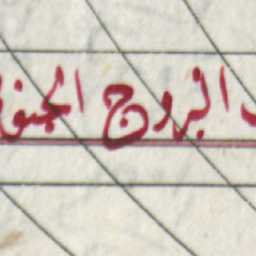 البروج الجنو